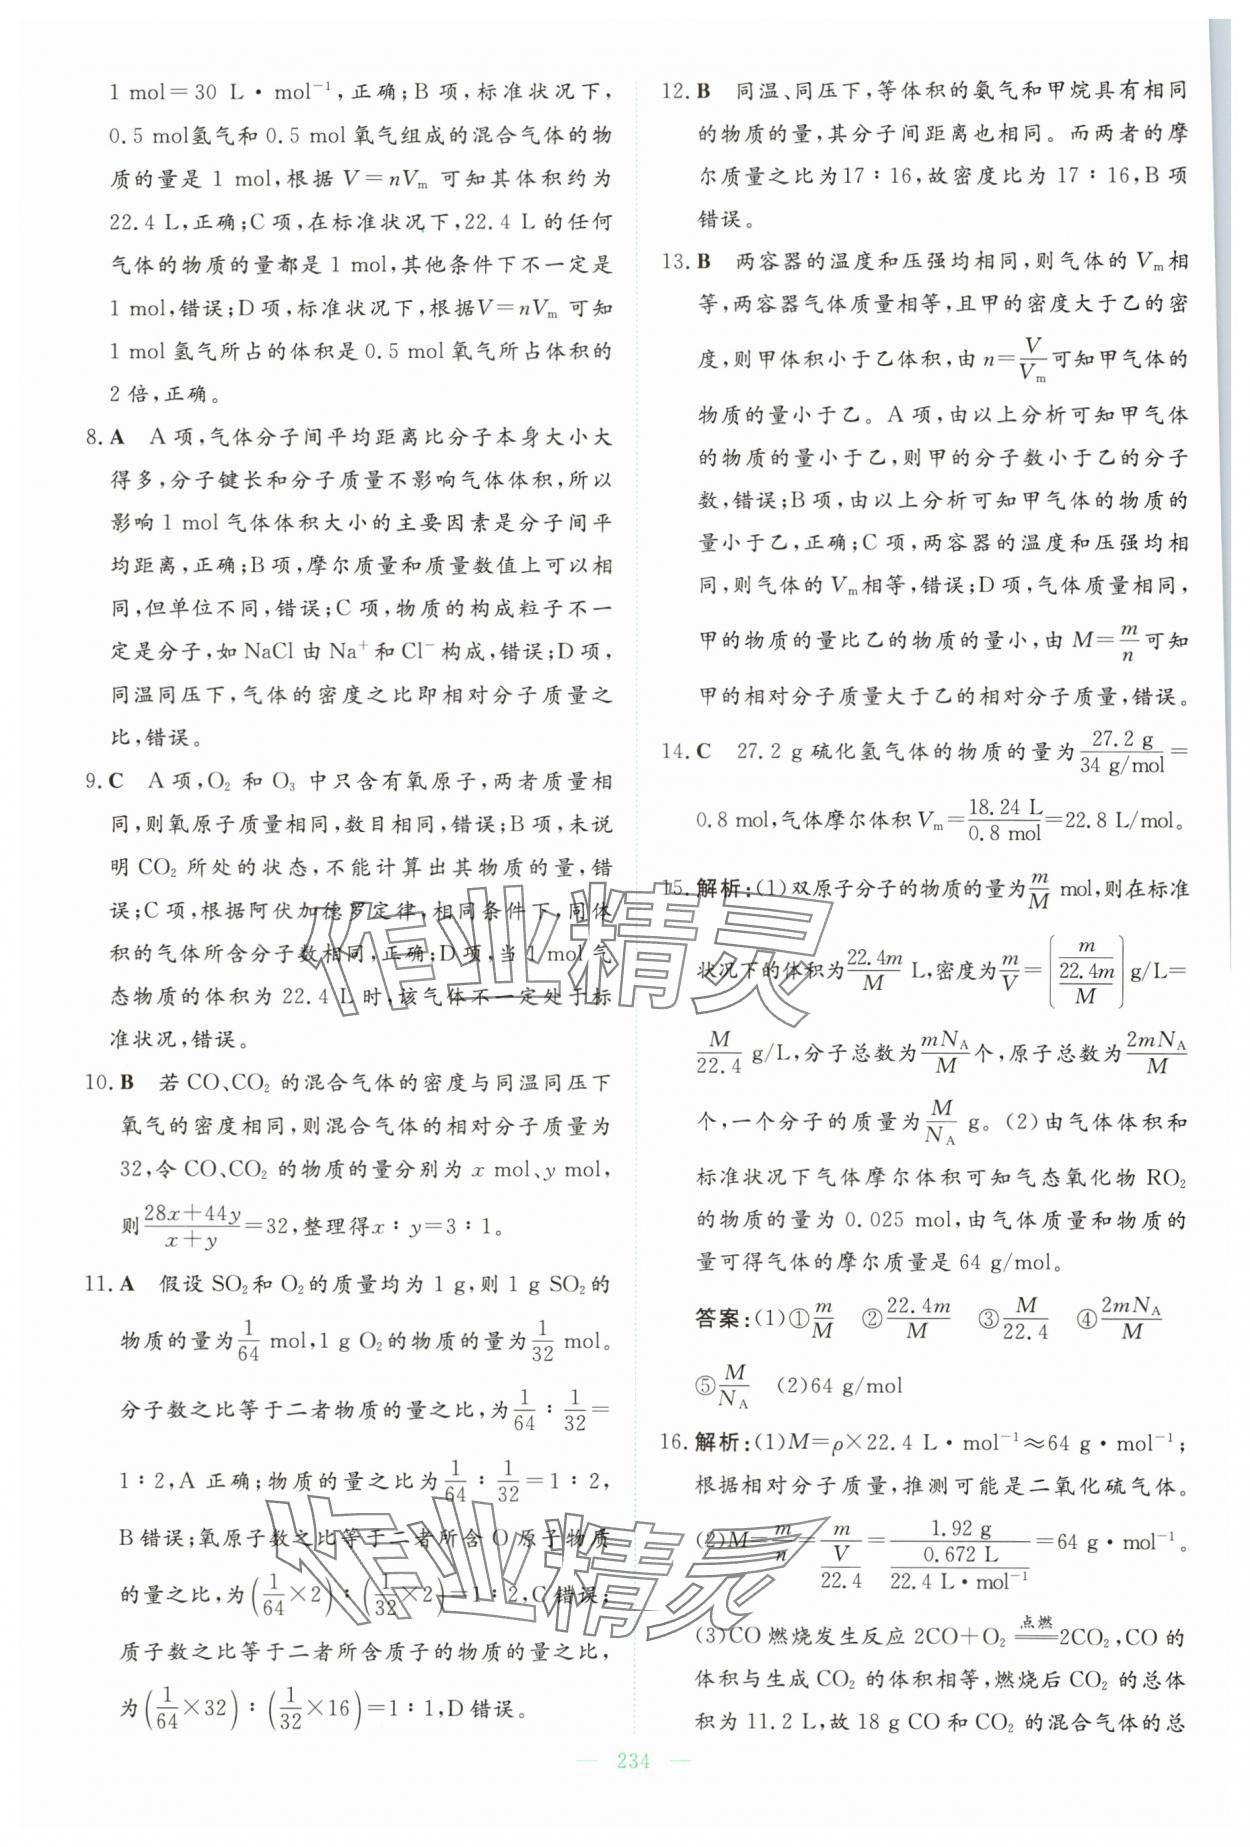 1 mol=30 L·mol⁻¹,正确;B 项,标准状况下,
0.5 mol氢气和 0.5 mol 氧气组成的混合气体的物
质的量是 1 mol,根据 V=nVₘ 可知其体积约为
22.4 L,正确;C 项,在标准状况下,22.4 L 的任何
气体的物质的量都是 1 mol,其他条件下不一定是
1 mol,错误;D 项,标准状况下,根据V=nVₘ 可知
1 mol 氢气所占的体积是 0.5 mol 氧气所占体积的
2 倍,正确。
8. A A 项,气体分子间平均距离比分子本身大小大
得多,分子键长和分子质量不影响气体体积,所以
影响 1 mol 气体体积大小的主要因素是分子间平
均距离,正确;B 项,摩尔质量和质量数值上可以相
同,但单位不同,错误;C 项,物质的构成粒子不一
定是分子,如 NaCl 由 Na⁺ 和 Cl⁻ 构成,错误;D 项,
同温同压下,气体的密度之比即相对分子质量之
比,错误。
9. C A 项,O₂ 和 O₃ 中只含有氧原子,两者质量相
同,则氧原子质量相同,数目相同,错误;B 项,未说
明 CO₂ 所处的状态,不能计算出其物质的量,错
误;C 项,根据阿伏加德罗定律,相同条件下,同体
积的气体所含分子数相同,正确;D 项,当 1 mol 气
态物质的体积为 22.4 L 时,该气体不一定处于标
准状况,错误。
10. B 若 CO、CO₂ 的混合气体的密度与同温同压下
氧气的密度相同,则混合气体的相对分子质量为
32,令 CO、CO₂ 的物质的量分别为 x mol、y mol,
则(28x+44y)/(x+y)=32,整理得x∶y=3∶1。
11. A 假设 SO₂和 O₂的质量均为 1 g,则 1 g SO₂的
物质的量为1/64 mol,1 g O₂的物质的量为1/32 mol。
分子数之比等于二者物质的量之比,为1/64∶1/32=
1∶2,A 正确;物质的量之比为1/64∶1/32=1∶2,
B 错误;氧原子数之比等于二者所含 O 原子物质
的量之比,为(1/64×2)∶(1/32×2)=1∶2,C 错误;
质子数之比等于二者所含质子的物质的量之比,
为(1/64×32)∶(1/32×16)=1∶1,D 错误。
12. B 同温、同压下,等体积的氨气和甲烷具有相同
的物质的量,其分子间距离也相同。而两者的摩
尔质量之比为17∶16,故密度比为 17∶16,B 项
错误。
13. B 两容器的温度和压强均相同,则气体的 Vₘ相
等,两容器气体质量相等,且甲的密度大于乙的密
度,则甲体积小于乙体积,由 n=V/Vₘ可知甲气体的
物质的量小于乙。A 项,由以上分析可知甲气体
的物质的量小于乙,则甲的分子数小于乙的分子
数,错误;B 项,由以上分析可知甲气体的物质的
量小于乙,正确;C 项,两容器的温度和压强均相
同,则气体的 Vₘ相等,错误;D 项,气体质量相同,
甲的物质的量比乙的物质的量小,由 M=m/n可知
甲的相对分子质量大于乙的相对分子质量,错误。
14. C 27.2 g 硫化氢气体的物质的量为27.2 g/34 g/mol=
0.8 mol,气体摩尔体积 Vₘ=18.24 L/0.8 mol=22.8 L/mol。
15. 解析:(1)双原子分子的物质的量为m/M mol,则在标准
状况下的体积为22.4m/M L,密度为m/V=(m/(22.4m/M)) g/L=
M/22.4 g/L,分子总数为mNA/M个,原子总数为2mNA/M
个,一个分子的质量为M/NA g。(2)由气体体积和
标准状况下气体摩尔体积可知气态氧化物 RO₂
的物质的量为 0.025 mol,由气体质量和物质的
量可得气体的摩尔质量是 64 g/mol。
答案:(1)①m/M ②22.4m/M ③M/22.4 ④2mNA/M
⑤M/NA (2)64 g/mol
16. 解析:(1)M=ρ×22.4 L·mol⁻¹≈64 g·mol⁻¹;
根据相对分子质量,推测可能是二氧化硫气体。
(2)M=m/n=m/(V/22.4)=1.92 g/(0.672 L/22.4 L·mol⁻¹)=64 g·mol⁻¹。
(3)CO 燃烧发生反应 2CO+O₂ 点燃══2CO₂,CO 的
体积与生成 CO₂ 的体积相等,燃烧后 CO₂ 的总体
积为 11.2 L,故 18 g CO 和 CO₂ 的混合气体的总
— 234 —
作业精灵
作业精灵